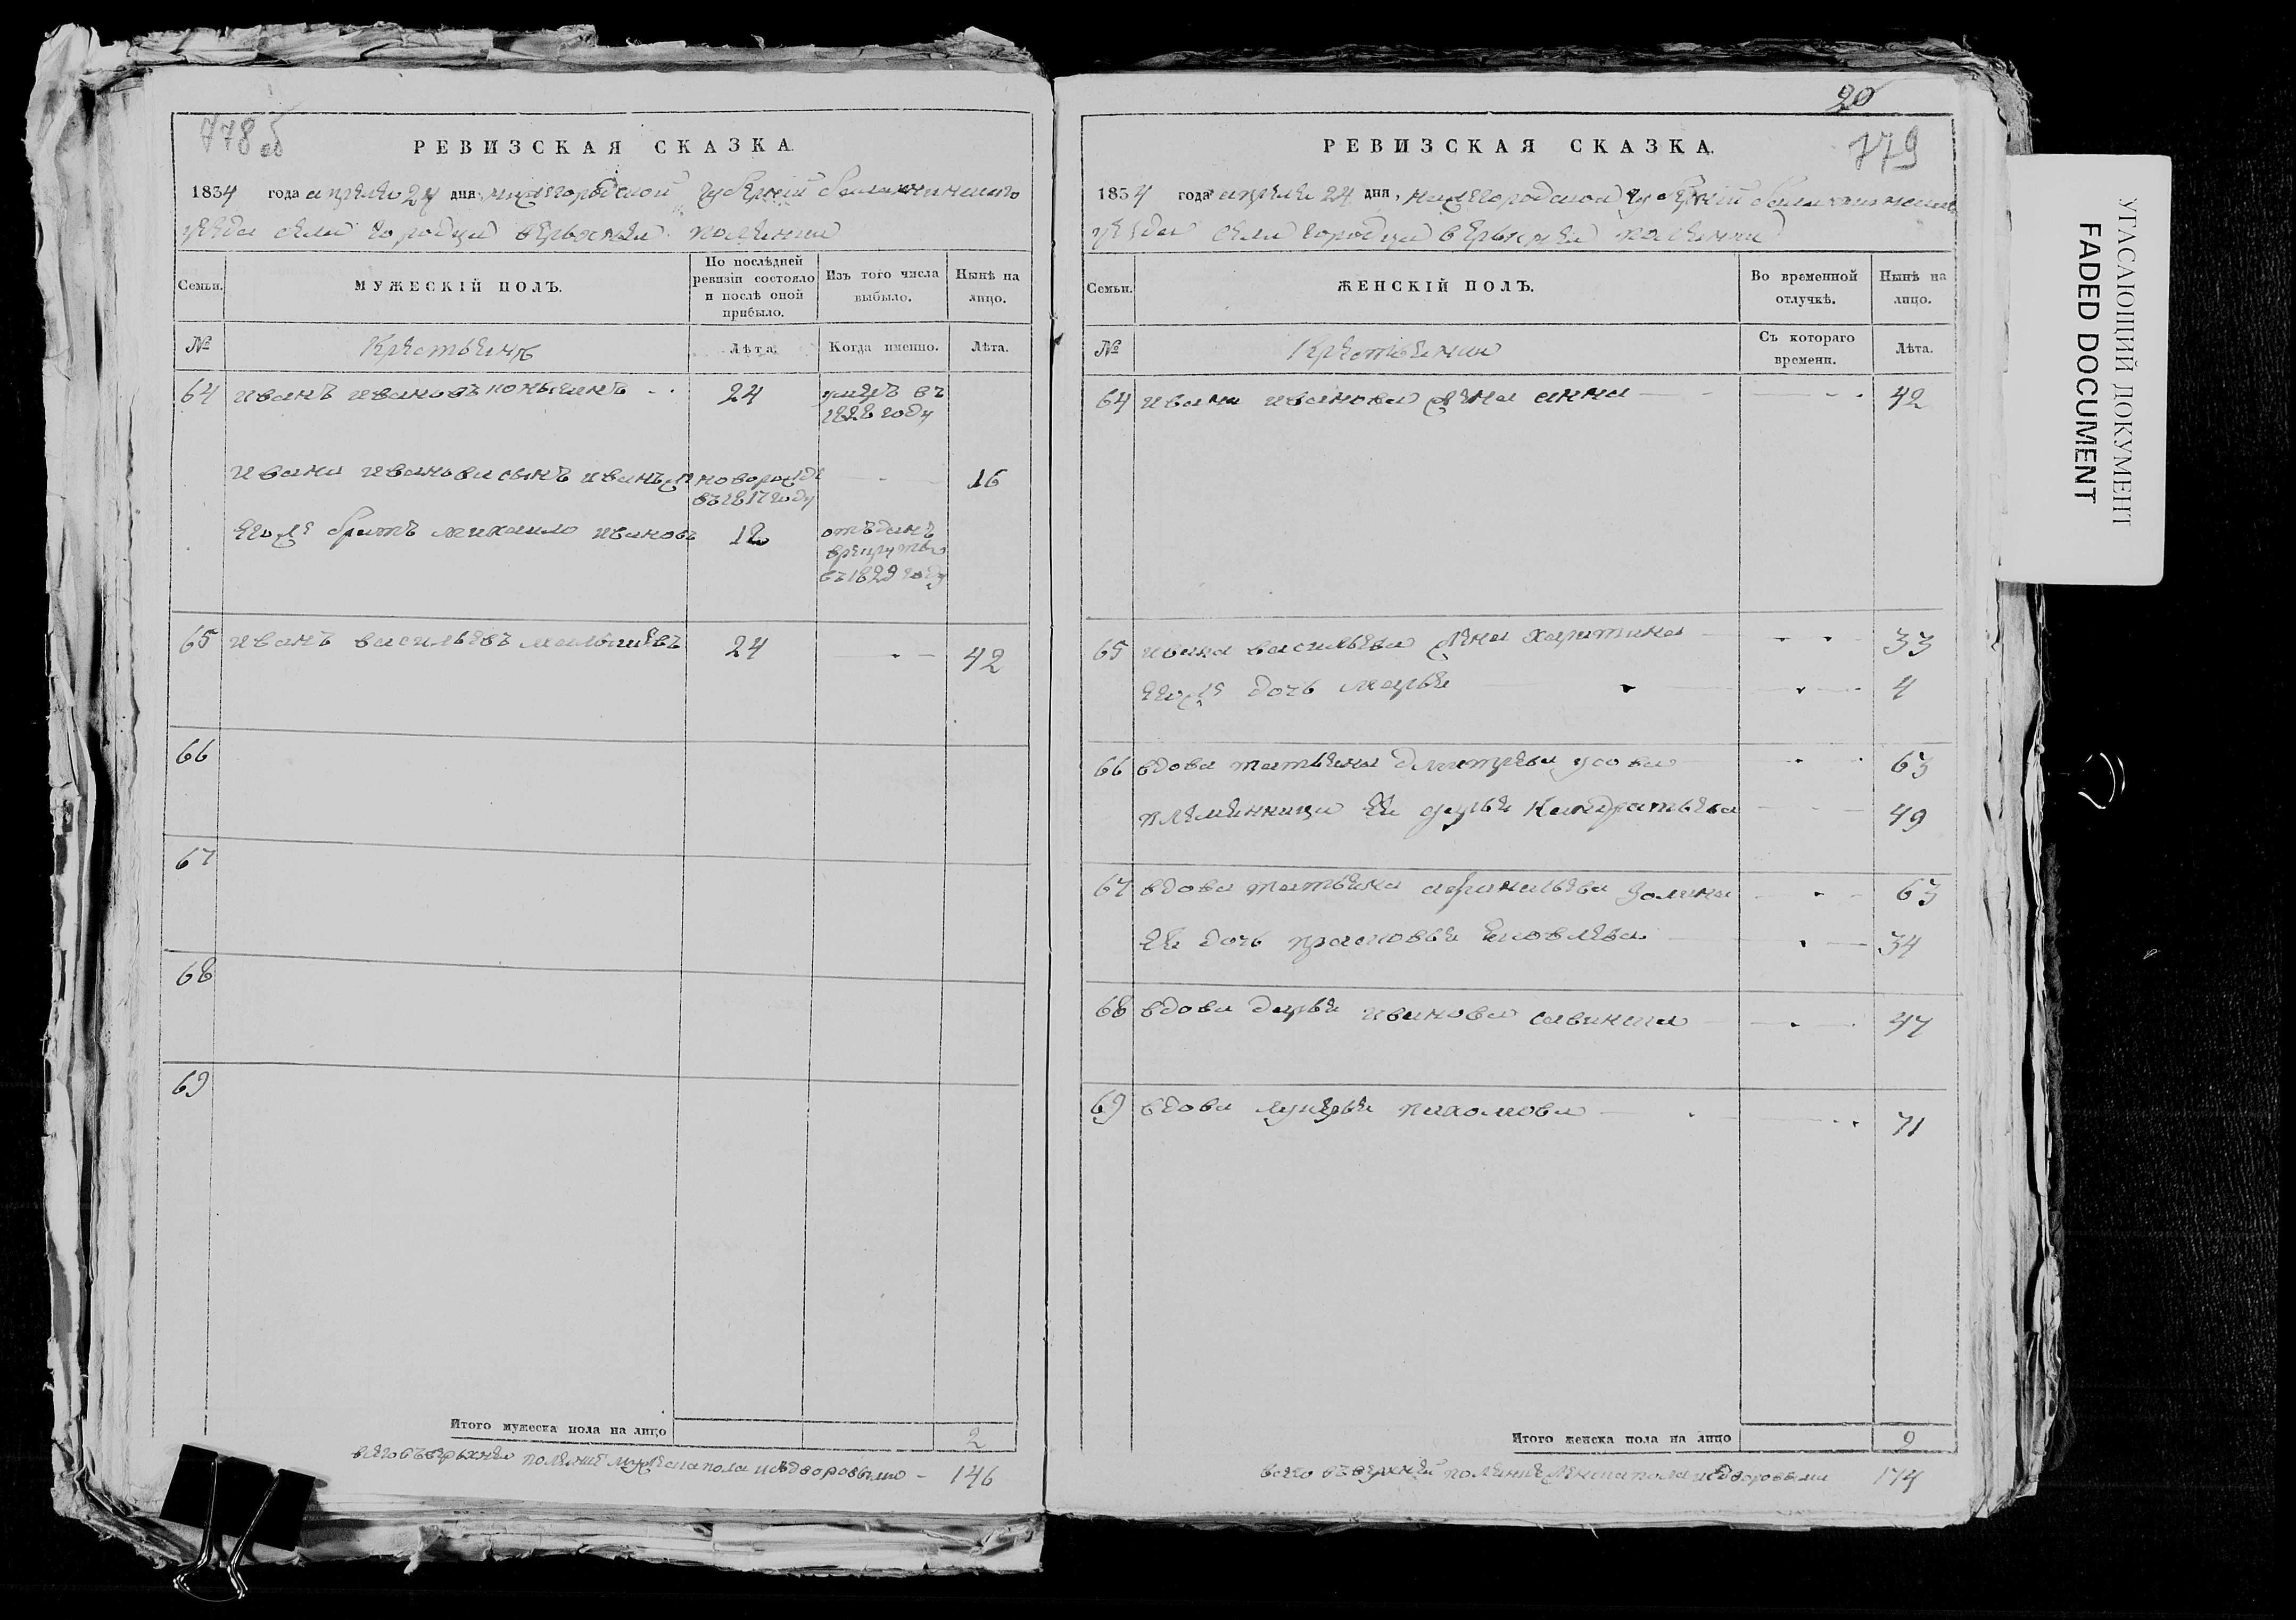 778 об
РЕВИЗСКАЯ СКАЗКА.
1834 года апреля 24 дня нижегородской губернии балахнинскаго
уезда села городца верьхнея полянки
Семьи.
МУЖЕСКІЙ ПОЛЪ.
По послѣдней ревизіи состояло и послѣ оной прибыло.
Изъ того числа выбыло.
Нынѣ на лицо.
№
Крестьянъ
Лѣта.
Когда именно.
Лѣта.
64 иванъ ивановъ 24 умеръ въ
1828 году
ивана иванова сынъ иванъ новорожде 16
въ 1817 году
егоже братъ михаило ивановъ 12 отъданъ
врекруты
въ 1829 году
65 иванъ васильевъ малышевъ 24 42
66
67
68
69
Итого мужеска пола на лицо 2
всего въверьхней полянке мужеска пола исдворовыми 146
20
779
РЕВИЗСКАЯ СКАЗКА.
1834 года апреля 24 дня, нижегородской губернии балахнинскаго
уезда села городца верьхнея полянки
Семьи.
ЖЕНСКІЙ ПОЛЪ.
Во временной отлучкѣ.
Нынѣ на лицо.
№
Крестьянки
Съ котораго времени.
Лѣта.
64 ивана иванова жена анна 42
65 ивана васильева жена харитина 33
егоже дочь марья 4
66 вдова татьяна дмитрева усова 63
племянница ея дарья Кандратьева 49
67 вдова татьяна 63
ея дочь прасковья яковлева 34
68 вдова дарья иванова савинна 47
69 вдова лукерья пахомова 71
Итого женска пола на лицо 9
всего въверхней полянке женска пола исдворовыми 174
УГАСАЮЩИЙ ДОКУМЕНТ
FADED DOCUMENT